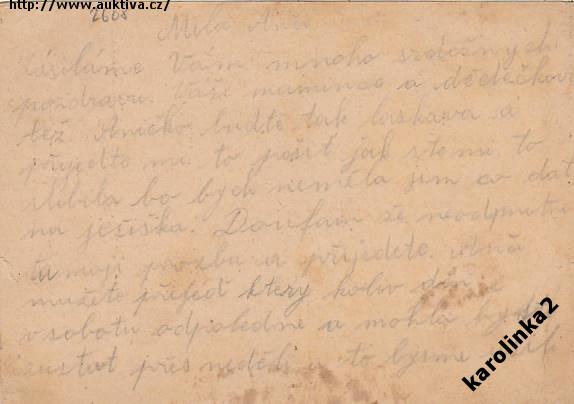 http://www.auktiva.cz/
2608
Milá
Zasíláme Vám mnoho srdečných
pozdravu. Vaše mamince a dědečkovi
též. Aničko buďte tak laskava a
přijedte mi to pošit jak ste mi to
slíbila bo bych neměla jim co dat
na ježíška. Doufam že neodmitne
tu moji prozbu a přijedete.
mužete přijeďt ktery koliv den
v sobotu odpoledne a mohla
zustat přes neděli a to bysme
karolinka2